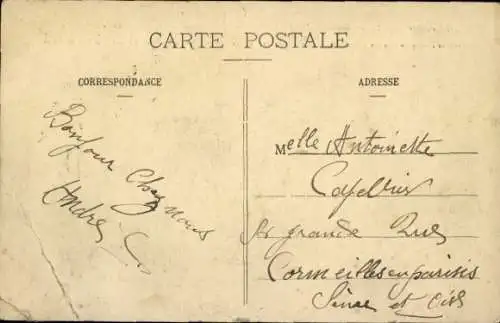 CARTE POSTALE
CORRESPONDANCE
Bonjour Chez nous
André C
ADRESSE
Melle Antoinette
grande Rue
Cormeilles en parisis
Seine et Oise